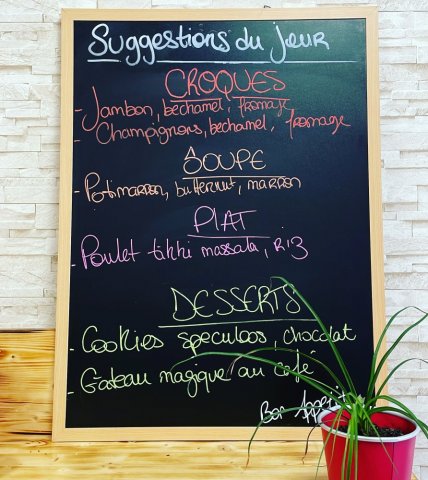 Suggestions du jour
CROQUES
- Jambon, bechamel, fromage
- Champignons, bechamel, fromage
SOUPE
- Potimarron, butternut, marron
PLAT
- Poulet tikki massala, RIZ
DESSERTS
- Cookies speculoos, chocolat
- Gateau magique au café
Bon Appétit